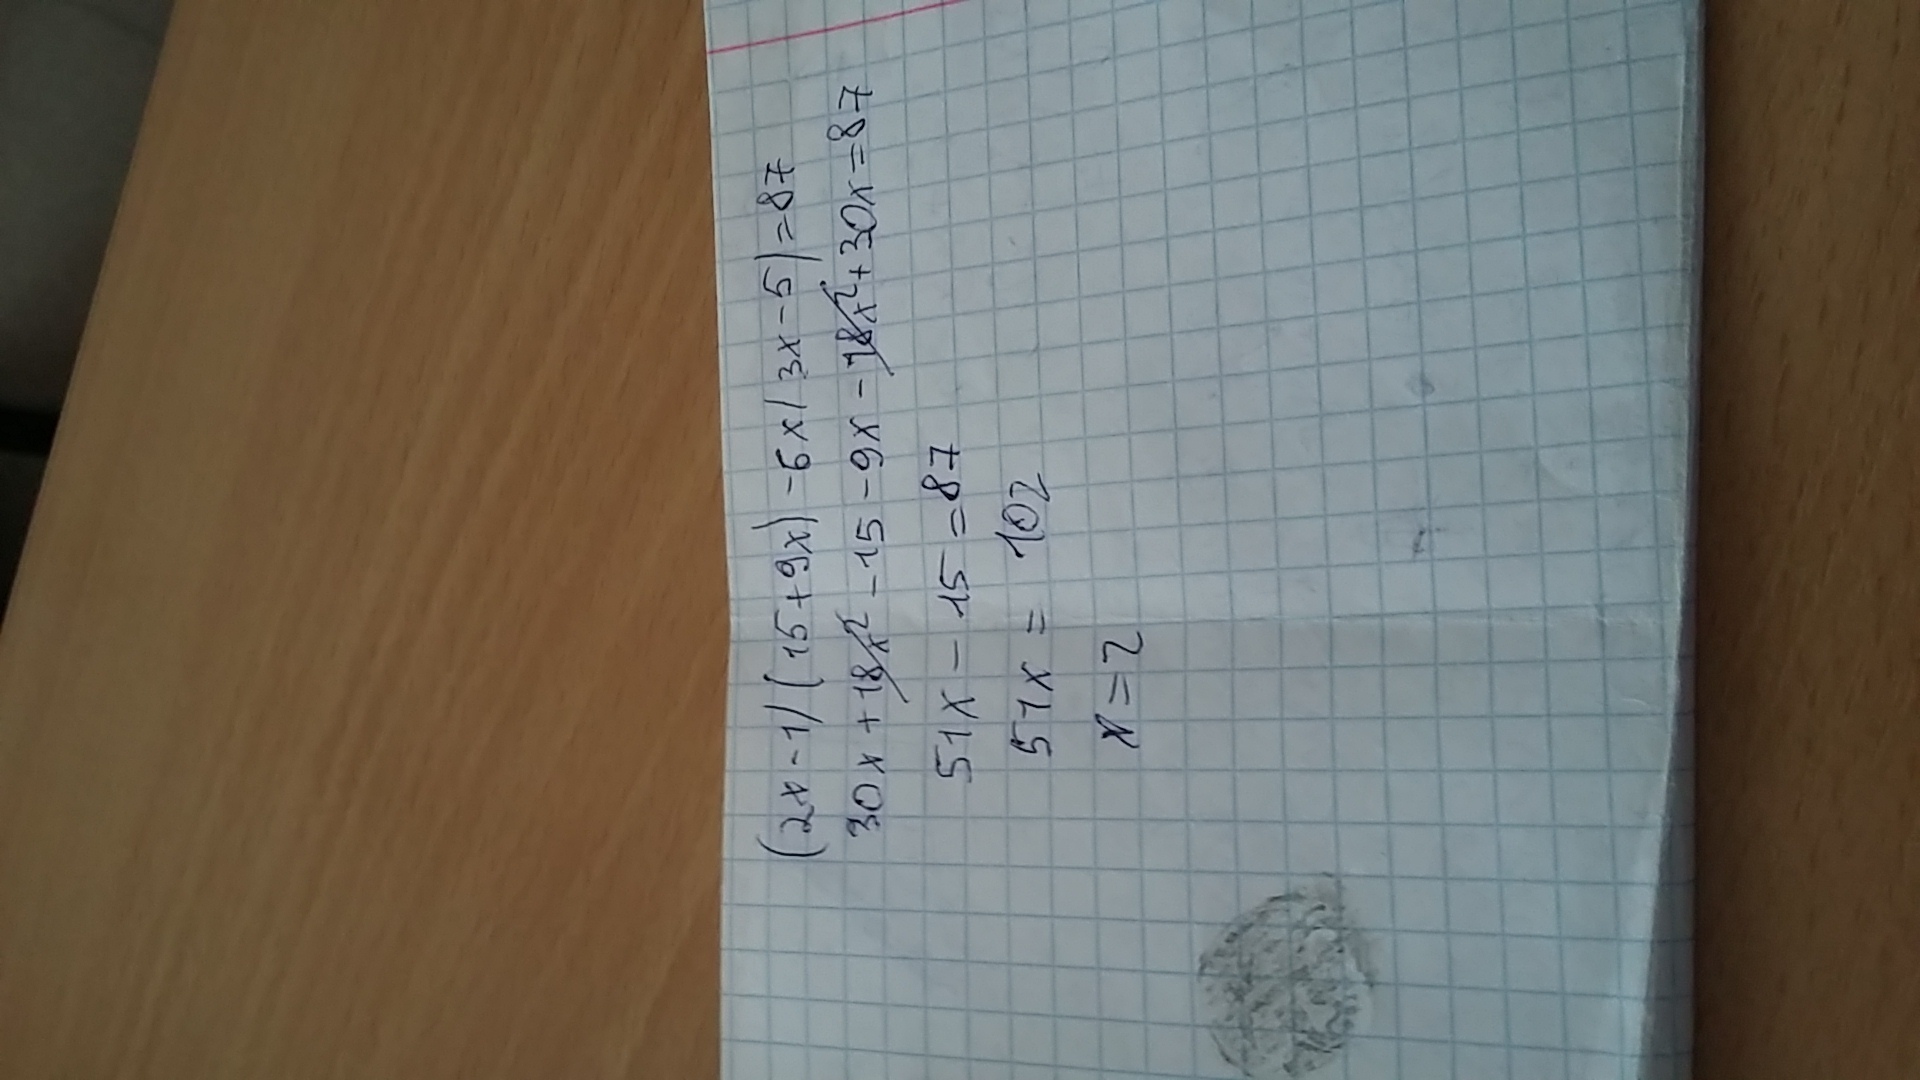 (2x-1)(15+9x)-6x(3x-5)=87
30x+18x²-15-9x-18x²+30x=87
51x-15=87
51x=102
x=2